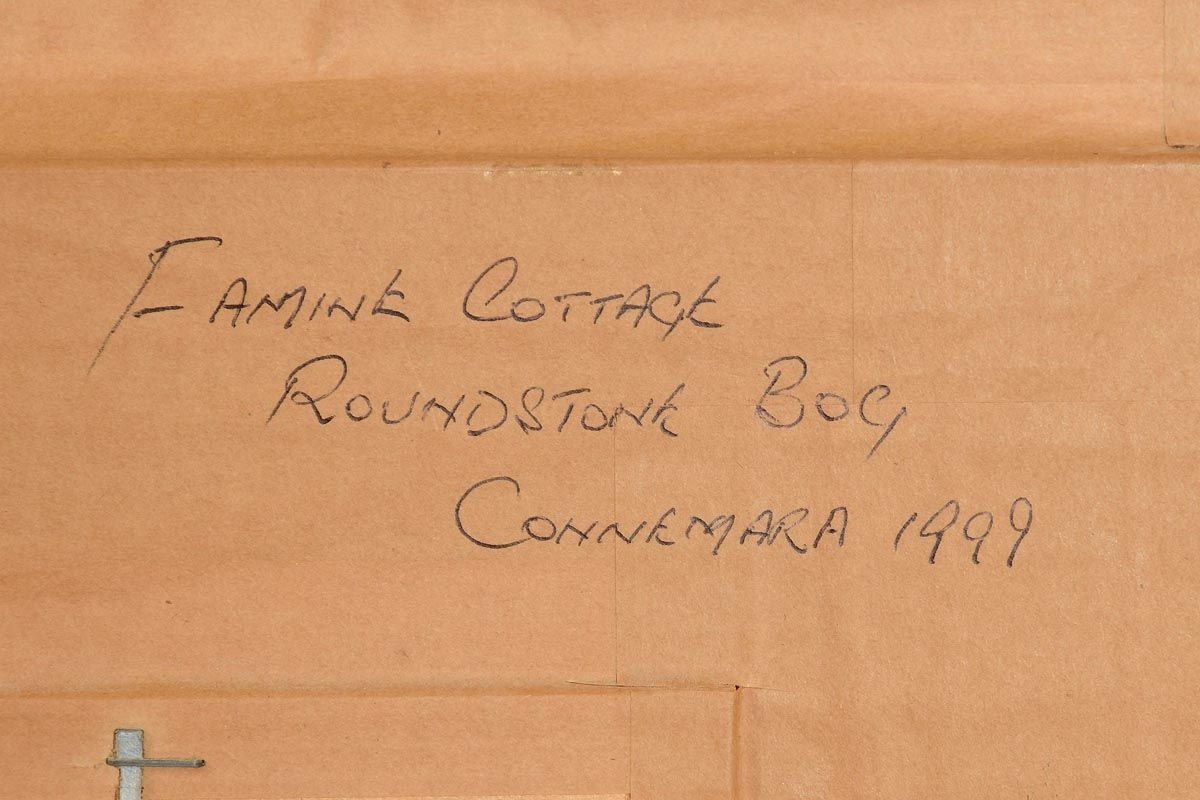 FAMINE COTTAGE
ROUNDSTONE BOG
CONNEMARA 1999